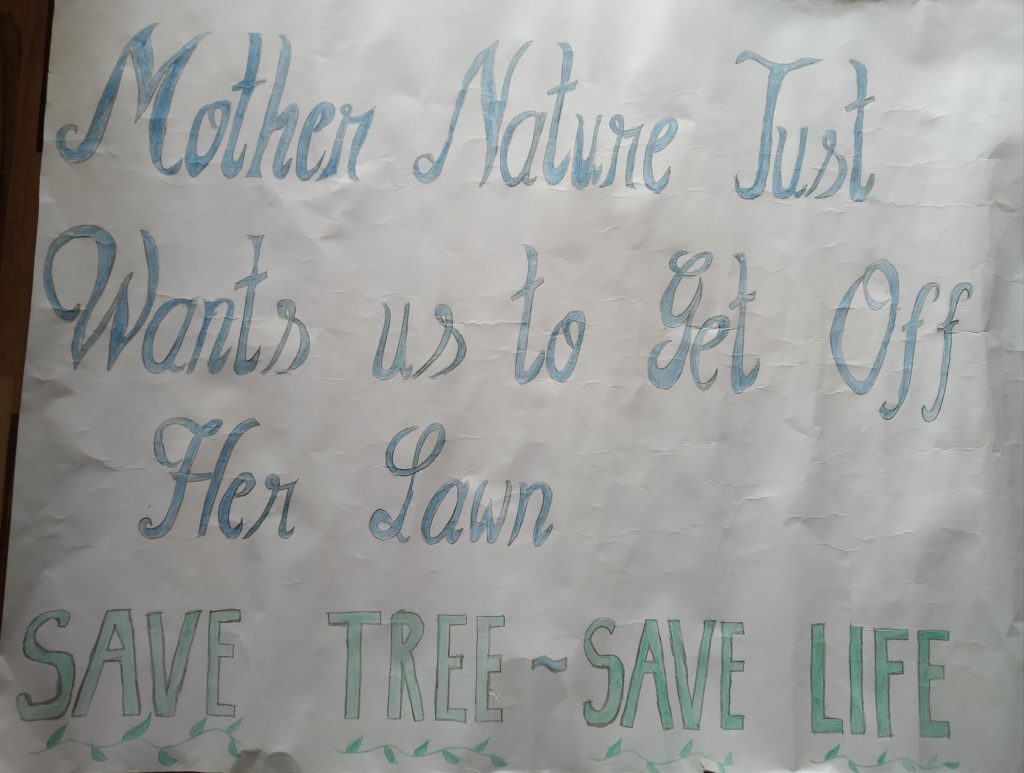 Mother Nature Just
Wants us to Get Off
Her Lawn
SAVE TREE ~ SAVE LIFE